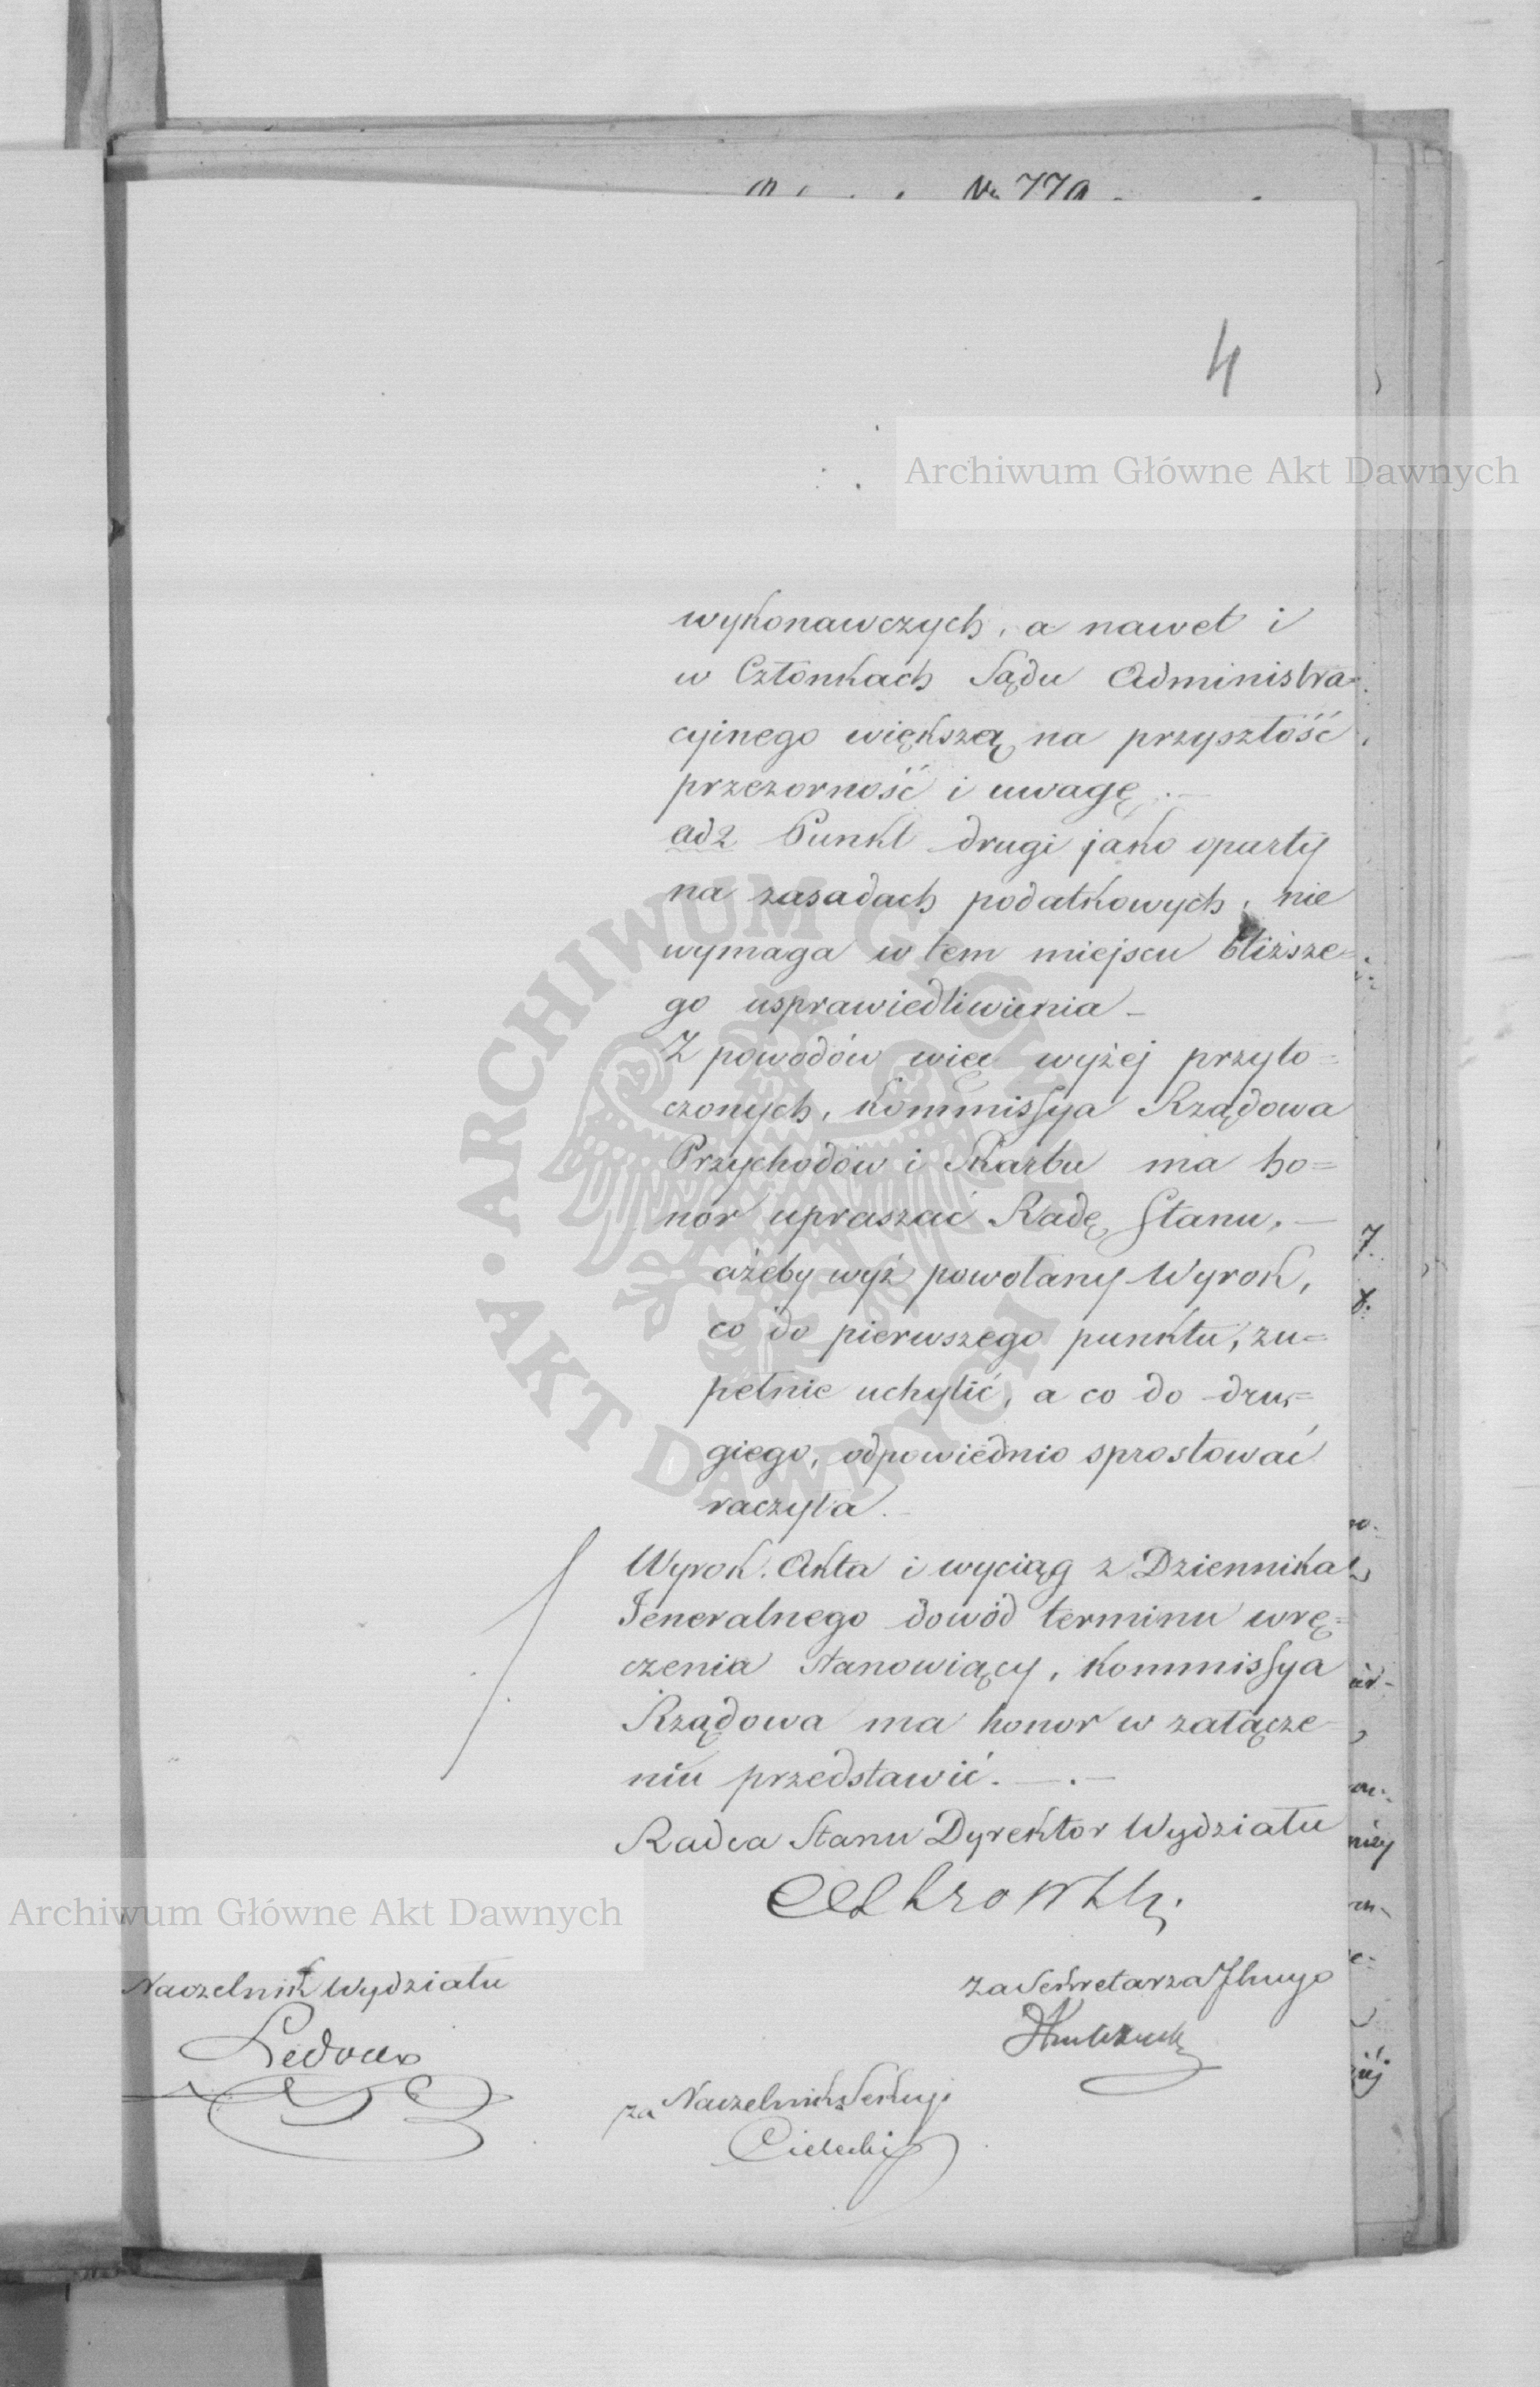 № 770
4
Archiwum Główne Akt Dawnych
wykonawczych, a nawet i
w Członkach Sądu Administra-
cyinego większą na przyszłość
przezorność i uwagę. —
ad 2 Punkt drugi jako oparty
na zasadach podatkowych, nie
wymaga w tem miejscu bliższe=
go usprawiedliwienia —
Z powodów więc wyżej przyto=
czonych, Kommissya Rządowa
Przychodów i Skarbu ma ho=
nor upraszać Radę Stanu, —
ażeby wyż powołany Wyrok,
co do pierwszego punktu, zu=
pełnie uchylić, a co do dru=
giego, odpowiednio sprostować
raczyła. —
Wyrok. Akta i wyciąg z Dziennika
Jeneralnego dowód terminu wrę=
czenia stanowiący, Kommissya
Rządowa ma honor w załącze-
niu przedstawić. — . —
Radca Stanu Dyrektor Wydziału
Archiwum Główne Akt Dawnych
Naczelnik Wydziału
za Sekretarza
Ledoux
za Naczelnika Sekcyi
Cielecki
ARCHIWUM GŁÓWNE AKT DAWNYCH